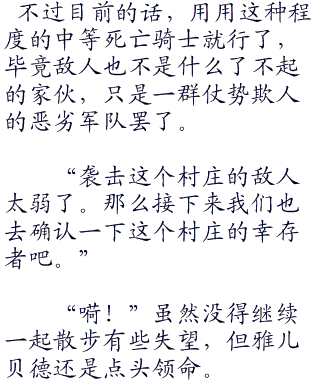 不过目前的话，用用这种程
度的中等死亡骑士就行了，
毕竟敌人也不是什么了不起
的家伙，只是一群仗势欺人
的恶劣军队罢了。
“袭击这个村庄的敌人
太弱了。那么接下来我们也
去确认一下这个村庄的幸存
者吧。”
“嗬！”虽然没得继续
一起散步有些失望，但雅儿
贝德还是点头领命。